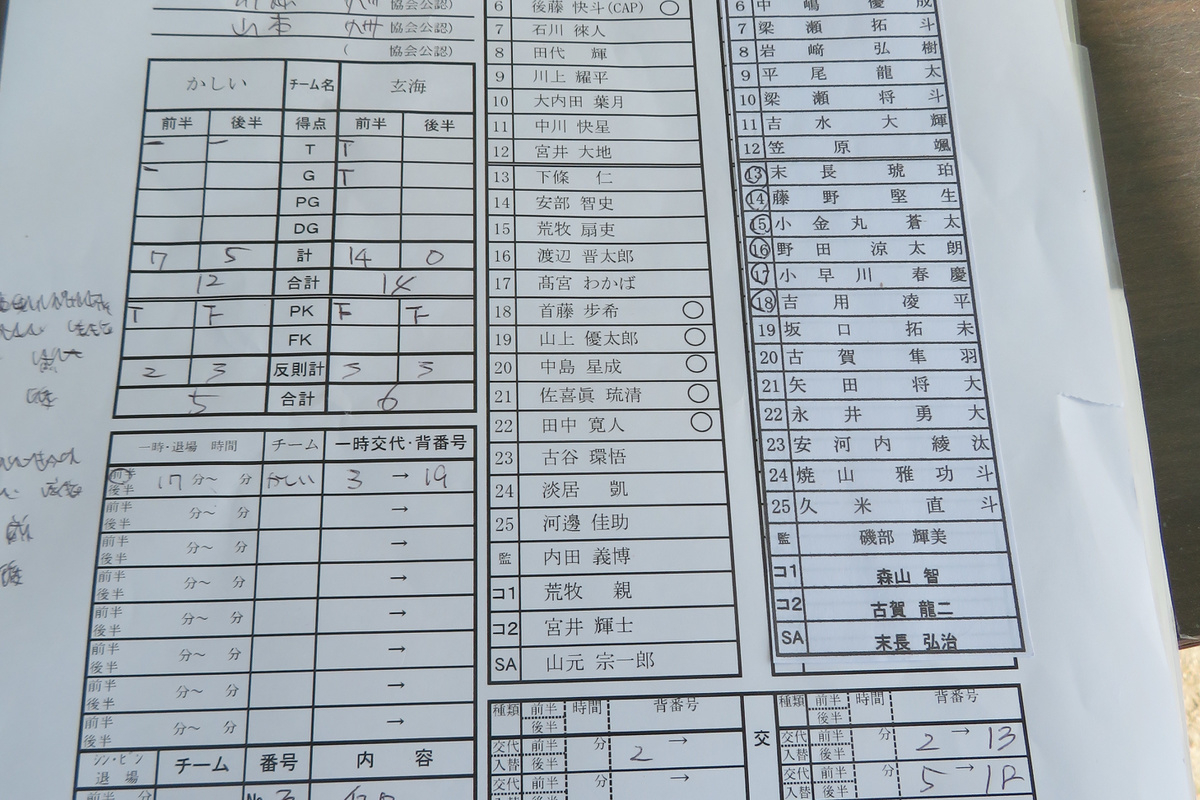 山本 州 協会公認)
( 協会公認)
かしい チーム名 玄海
前半 後半 得点 前半 後半
一 一 T T
一 G T
PG
DG
7 5 計 14 0
12 合計 14
T F PK F F
FK
2 3 反則計 3 3
5 合計 6
一時・退場 時間 チーム 一時交代・背番号
前半 後半 17分〜 分 かしい 3 → 19
前半 後半 分〜 分 →
前半 後半 分〜 分 →
前半 後半 分〜 分 →
前半 後半 分〜 分 →
前半 後半 分〜 分 →
前半 後半 分〜 分 →
前半 後半 分〜 分 →
シン・ビン 退場 チーム 番号 内容
前半 分
6 後藤 快斗(CAP) ○
7 石川 徠人
8 田代 輝
9 川上 耀平
10 大内田 葉月
11 中川 快星
12 宮井 大地
13 下條 仁
14 安部 智史
15 荒牧 扇吏
16 渡辺 晋太郎
17 髙宮 わかば
18 首藤 歩希 ○
19 山上 優太郎 ○
20 中島 星成 ○
21 佐喜眞 琉清 ○
22 田中 寛人 ○
23 古谷 環悟
24 淡居 凱
25 河邊 佳助
監 内田 義博
コ1 荒牧 親
コ2 宮井 輝士
SA 山元 宗一郎
6 中嶋 優成
7 梁瀬 拓斗
8 岩﨑 弘樹
9 平尾 龍太
10 梁瀬 将斗
11 吉水 大輝
12 笠原 颯
13 末長 琥珀
14 藤野 堅生
15 小金丸 蒼太
16 野田 涼太朗
17 小早川 春慶
18 吉用 凌平
19 坂口 拓未
20 古賀 隼羽
21 矢田 将大
22 永井 勇大
23 安河内 綾汰
24 焼山 雅功斗
25 久米 直斗
監 磯部 輝美
コ1 森山 智
コ2 古賀 龍二
SA 末長 弘治
種類 前半 後半 時間 背番号
交代 入替 前半 後半 分 2 →
交代 入替 前半 後半 →
交
種類 前半 後半 時間 背番号
交代 入替 前半 後半 分 2 → 13
交代 入替 前半 後半 分 5 → 18